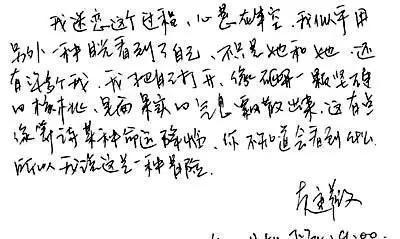 我迷恋这个过程，心悬在半空，我似乎用
另外一种目光看到了自己，不只是她和她，还
有许多个我，我把自己打开，像砸开一颗坚硬
的核桃，里面果实的气息飘散出来，这有点
像等待某种命运降临，你不知道会看到什么
所以我说这是一种冒险